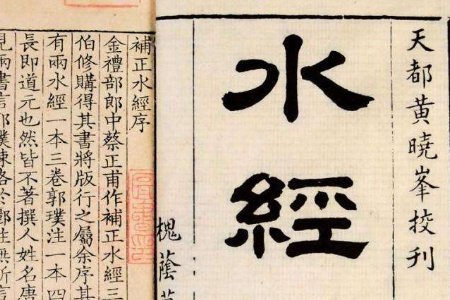 天都黄曉峯挍刋
水經
槐蔭
補正水經序
金禮部郎中蔡正甫作補正水經三
伯修購得其書將版行之屬余序其
有兩水經一本三卷郭璞注一本四
長即道元也然皆不著撰人姓名唐